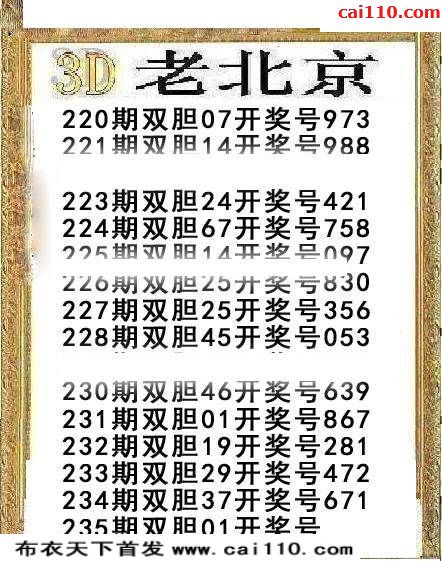 cai110.com
3D 老北京
220期双胆07开奖号973
221期双胆14开奖号988
223期双胆24开奖号421
224期双胆67开奖号758
225期双胆14开奖号097
226期双胆25开奖号830
227期双胆25开奖号356
228期双胆45开奖号053
230期双胆46开奖号639
231期双胆01开奖号867
232期双胆19开奖号281
233期双胆29开奖号472
234期双胆37开奖号671
235期双胆01开奖号
布衣天下首发 www.cai110.com